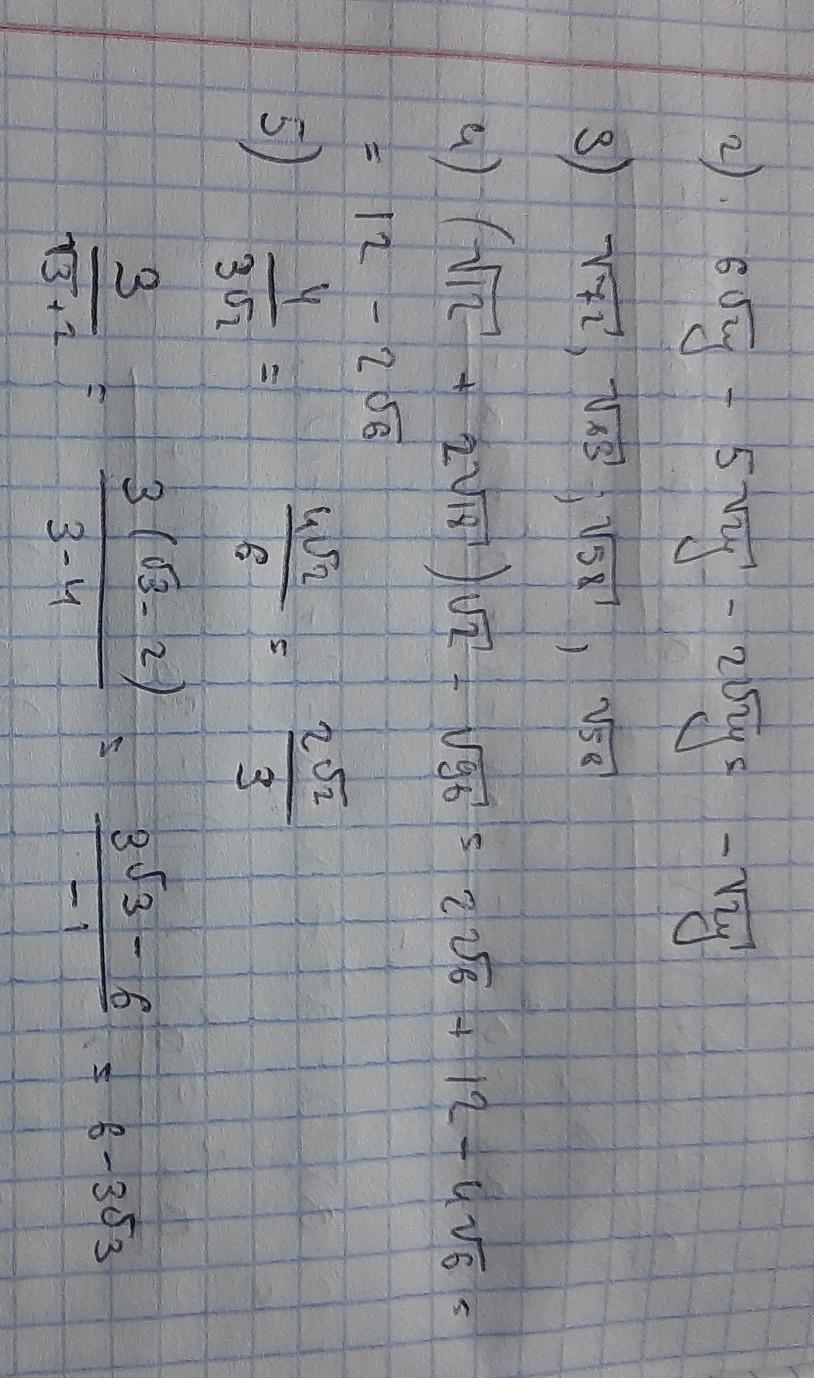 2). 6√2y - 5√2y - 2√2y = -√2y
3) √72, √63; √58, √56
4) (√12 + 2√18)√2 - √96 = 2√6 + 12 - 4√6 =
= 12 - 2√6
5) 4/3√2 = 4√2/6 = 2√2/3
3/√3+2 = 3(√3-2)/3-4 = 3√3-6/-1 = 6-3√3